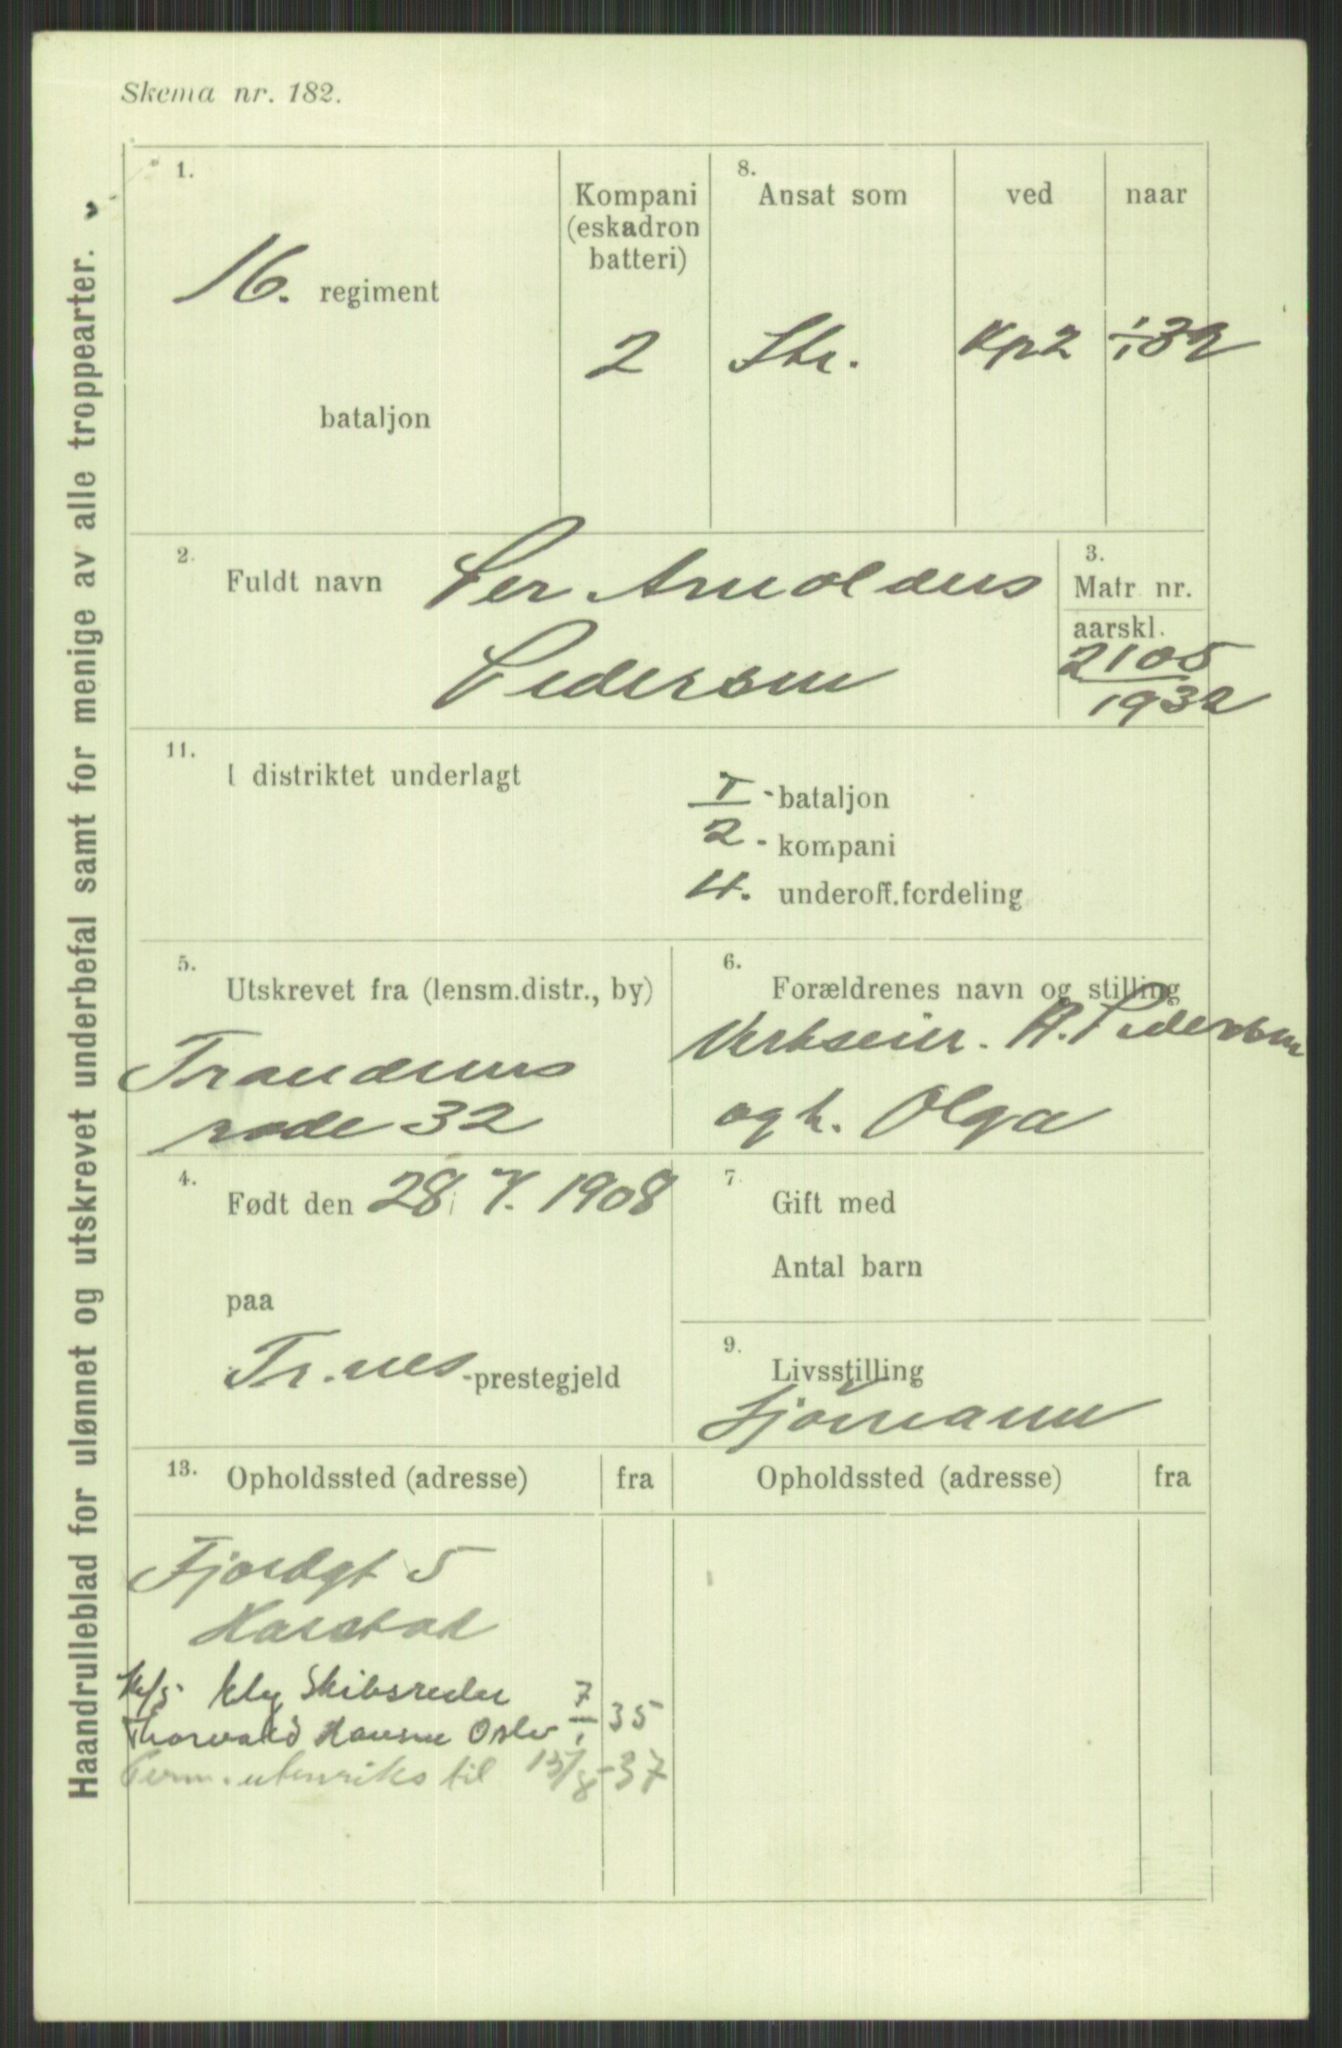 Skema nr. 182.
Haandrulleblad for ulønnet og utskrevet underbefal samt for menige av alle troppearter.
1.
16. regiment
bataljon
Kompani
(eskadron
batteri)
2
8.
Ansat som
Str.
ved
Kp2
naar
32
2.
Fuldt navn Per Arnoldus
Pedersen
3.
Matr nr.
aarskl.
2105
1932
11.
I distriktet underlagt
I - bataljon
2 - kompani
4. underoff.fordeling
5.
Utskrevet fra (lensm.distr., by)
Trondenes
rode 32
6.
Forældrenes navn og stilling
Verkseier. A. Pedersen
og h. Olga
4.
Født den 28. 7. 1908
paa
Tr.nes -prestegjeld
7.
Gift med
Antal barn
9.
Livsstilling
Sjømann
13. Opholdssted (adresse) fra
Opholdssted (adresse) fra
Fjordgt 5
Harstad
Skibsreder
Thorvald Hansen Oslo 7/1 35
Perm. utenriks til 15/8-37